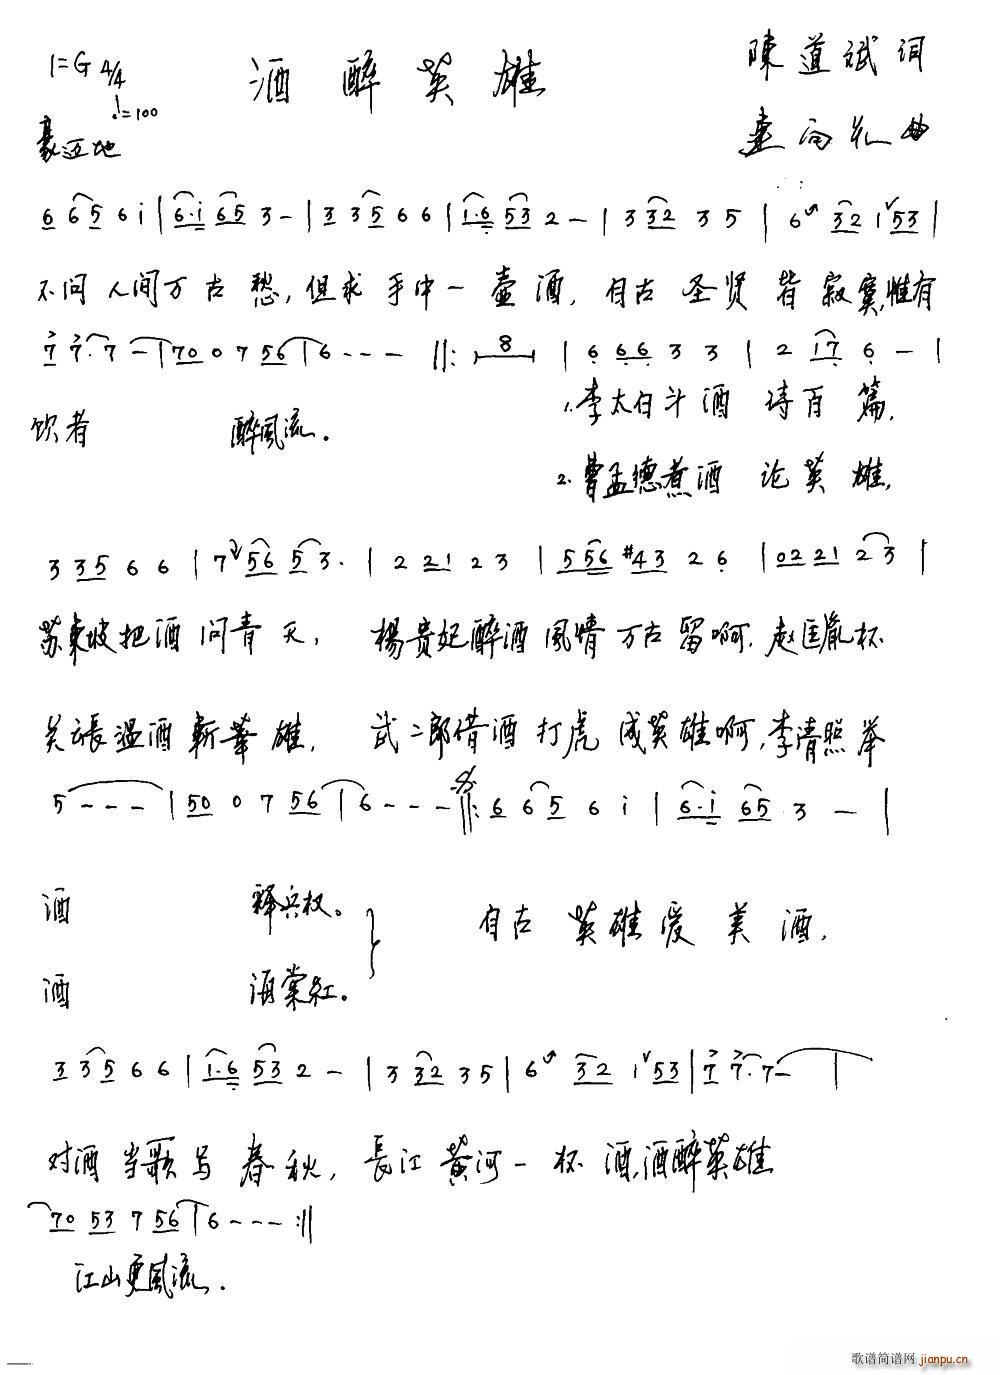 1=G 4/4 酒醉英雄 陳道斌 词
♩=100
豪迈地 曲
6 6 5 6 i | 6·i 6 5 3 - | 3 3 5 6 6 | 1·6 5 3 2 - | 3 3 2 3 5 | 6 3 2 1 5 3 |
不问人间万古愁,但求手中一壶酒,自古圣贤皆寂寞,惟有
7 7·7 - | 7 0 0 7 5 6 | 6 - - - ‖: 8 | 6 6 6 3 3 | 2 1 7 6 - |
饮者 醉風流. 1.李太白斗酒诗百篇.
2.曹孟德煮酒论英雄,
3 3 5 6 6 | 7 5 6 5 3· | 2 2 1 2 3 | 5 5 6 #4 3 2 6 | 0 2 2 1 2 3 |
苏東坡把酒问青天, 楊贵妃醉酒風情万古留啊,赵匡胤杯
关張温酒斬華雄, 武二郎借酒打虎成英雄啊,李清照举
5 - - - | 5 0 0 7 5 6 | 6 - - - ‖: 6 6 5 6 i | 6·i 6 5 3 - |
酒 释兵权。 自古英雄爱美酒,
酒 海棠紅。
3 3 5 6 6 | 1·6 5 3 2 - | 3 3 2 3 5 | 6 3 2 1 5 3 | 7 7·7 - |
对酒当歌写春秋, 長江黄河一杯酒,酒醉英雄
7 0 5 3 7 5 6 | 6 - - - :‖
江山更風流.
歌谱简谱网
jianpu.cn